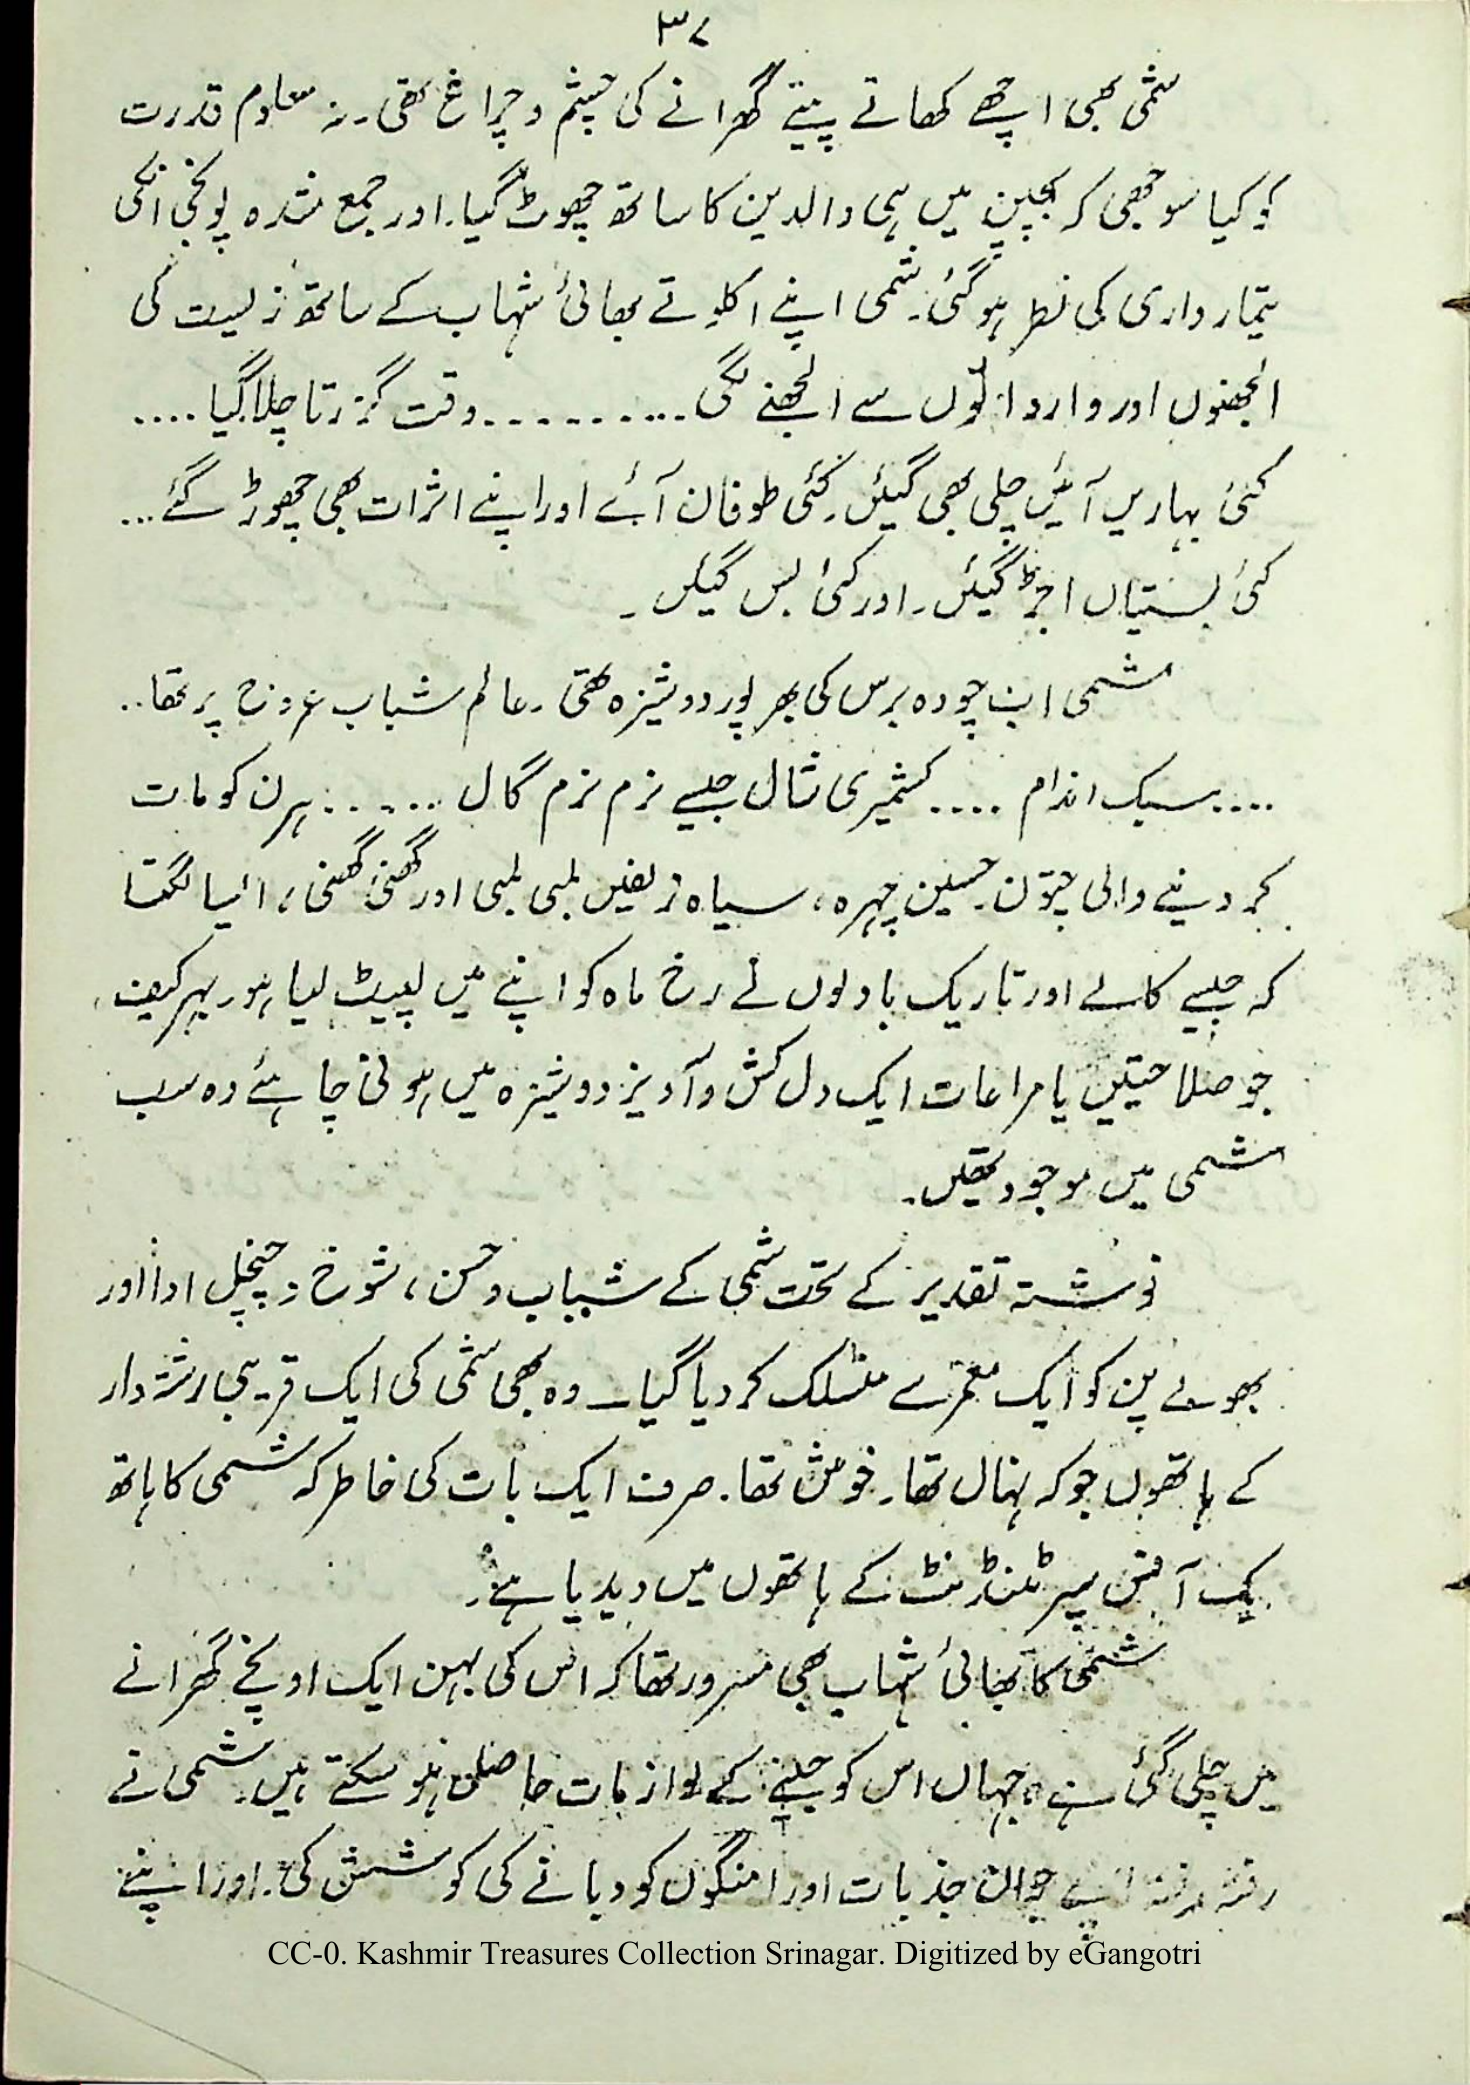 ۳۷
شمی بھی اچھے کھاتے پیتے گھرانے کی چشم و چراغ تھی۔ نہ معلوم قدرت
کو کیا سوجھی کہ بچپن میں ہی والدین کا ساتھ چھوٹ گیا۔ اور جمع شدہ پونجی انکی
تیمارداری کی نظر ہو گئی۔ شمی اپنے اکلوتے بھائی شہاب کے ساتھ زلیست کی
الجھنوں اور وارداتوں سے الجھنے لگی .......... وقت گزرتا چلا گیا ....
کئی بہاریں آئیں چلی بھی گیئں۔ کئی طوفان آئے اور اپنے اثرات بھی چھوڑ گئے ...
کئی بستیاں اجڑ گیئں۔ اور کئی بس گیئں۔
شمی اب چودہ برس کی بھر پور دوشیزہ تھی۔ عالم شباب عروج پر تھا ..
.... سبک اندام .... کشمیری شال جیسے نرم نرم گال ...... ہرن کو مات
کر دینے والی چتون۔ حسین چہرہ، سیاہ زلفیں لمبی لمبی اور گھنی گھنی، ایسا لگتا
کہ جیسے کالے اور تاریک بادلوں نے رخ ماہ کو اپنے میں لپیٹ لیا ہو۔ بہرکیف،
جو صلاحیتیں یا مراعات ایک دل کش و آویز دوشیزہ میں ہونی چاہئے وہ سب
شمی میں موجود تھیں۔
نوشتہ تقدیر کے تحت شمی کے شباب و حسن، شوخ و چنچل ادا اور
بھولے پن کو ایک معمر سے منسلک کر دیا گیا۔ وہ بھی شمی کی ایک قریبی رشتہ دار
کے ہاتھوں جو کہ نہال تھا۔ خوش تھا۔ صرف ایک بات کی خاطر کہ شمی کا ہاتھ
یک آفس سپرٹنڈنٹ کے ہاتھوں میں دیدیا ہے۔
شمی کا بھائی شہاب بھی مسرور تھا کہ اس کی بہن ایک اونچے گھرانے
میں چلی گئی ہے، جہاں اس کو جینے کے لوازمات حاصل ہو سکتے ہیں۔ شمی نے
رفتہ رفتہ اپنے جوان جذبات اور امنگوں کو دبانے کی کوشش کی۔ اور اپنے
CC-0. Kashmir Treasures Collection Srinagar. Digitized by eGangotri